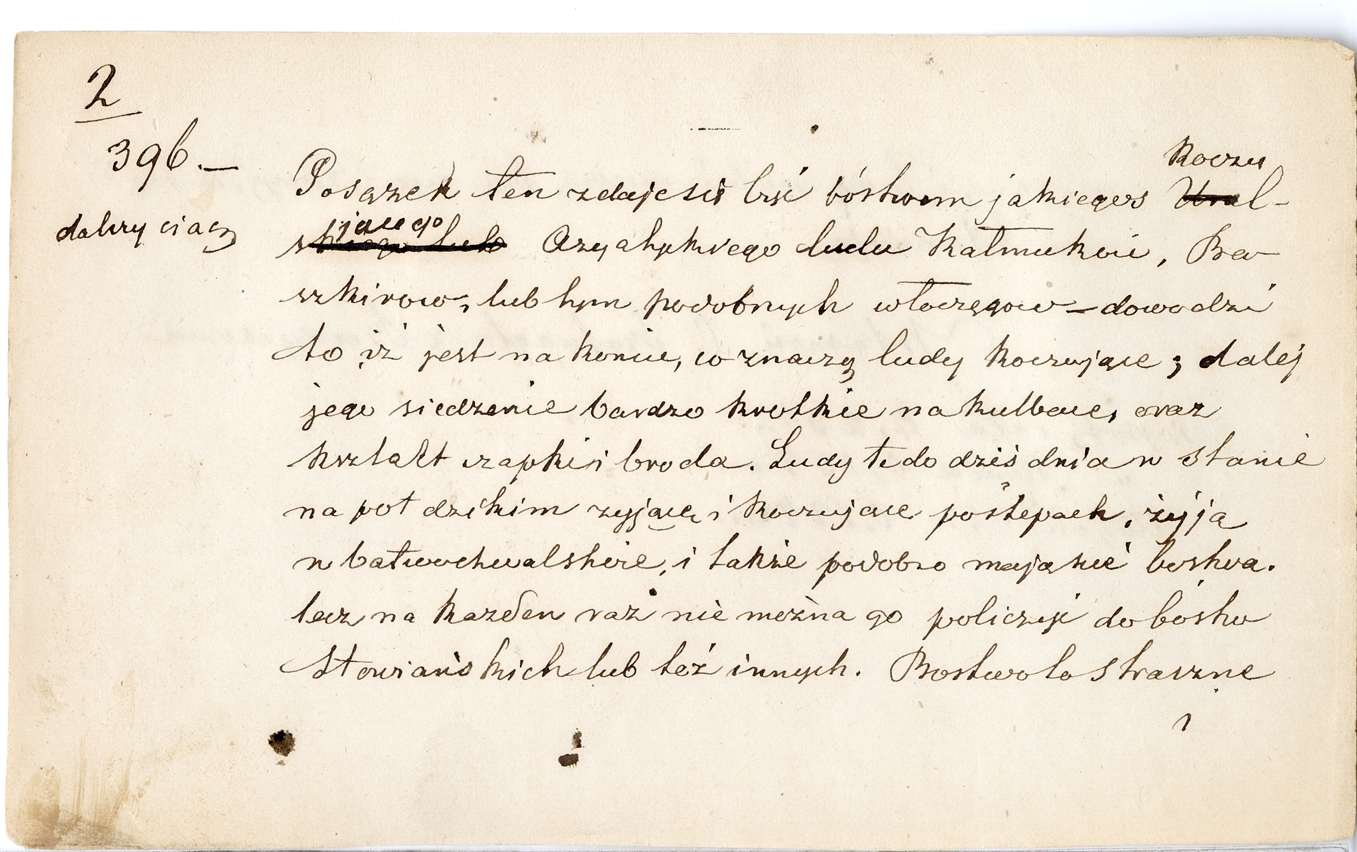 2
396.—
dalszy ciąg
Koczu
Posążek ten zdaje się być bóstwem jakiegoś Ural-
jącego
skiego lub Azyatykiego ludu Kałmuków, Ba-
szkirow, lub tym podobnych włoczęgow — dowodzi
to iż jest na koniu, co znaczy ludy koczujące; dalej
jego siedzenie bardzo krotkie na kulbace, oraz
kształt czapki i broda. Ludy te do dziś dnia w stanie
na poł dzikim żyjące, i koczujące postępach, żyją
w bałwochwalstwie, i także podobno mają swe bostwa.
lecz na każden raz nie można go policzyć do bóstw
Słowiańskich lub też innych. Bostwo to straszne